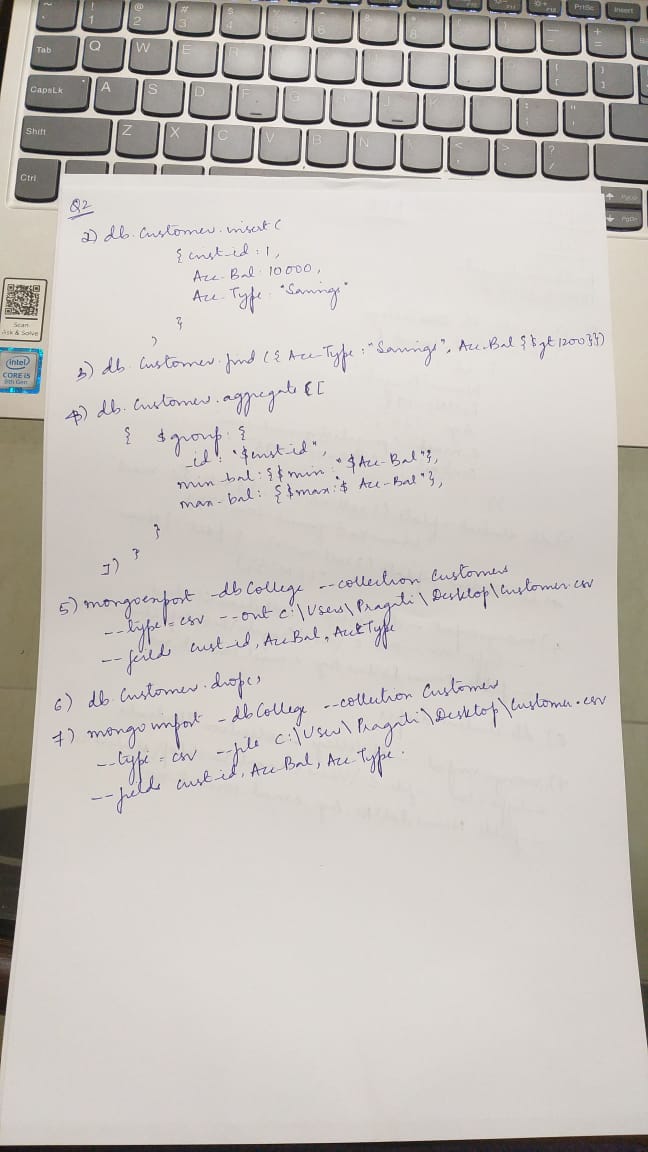 ~ ! @ # $
` 1 2 3 4 6 8 — + PrtSc Insert
Tab Q W E R
CapsLk A S D F G H J
Shift Z X C V B N < > ?
Ctrl PgUp
PgDn
Scan
Ask & Solve
intel
CORE i5
8th Gen
Q2
2) db.Customer.insert (
{ cust-id : 1,
Acc-Bal : 10000,
Acc-Type : "Savings"
}
)
3) db.Customer.find ({ Acc-Type : "Savings", Acc-Bal {$gt 1200}})
4) db.Customer.aggregate ([
{ $group : {
_id : "$cust-id",
min-bal : {$min : "$Acc-Bal"},
max-bal : {$max : $ Acc-Bal"},
}
}
])
5) mongoexport -db College --collection Customers
--type = csv --out C:\Users\Pragati\Desktop\Customer.csv
--fields cust-id, Acc Bal, Acc Type
6) db.Customer.drop()
7) mongoimport -db College --collection Customer
--type = csv --file C:\User\Pragati\Desktop\Customer.csv
--fields cust-id, Acc Bal, Acc Type.